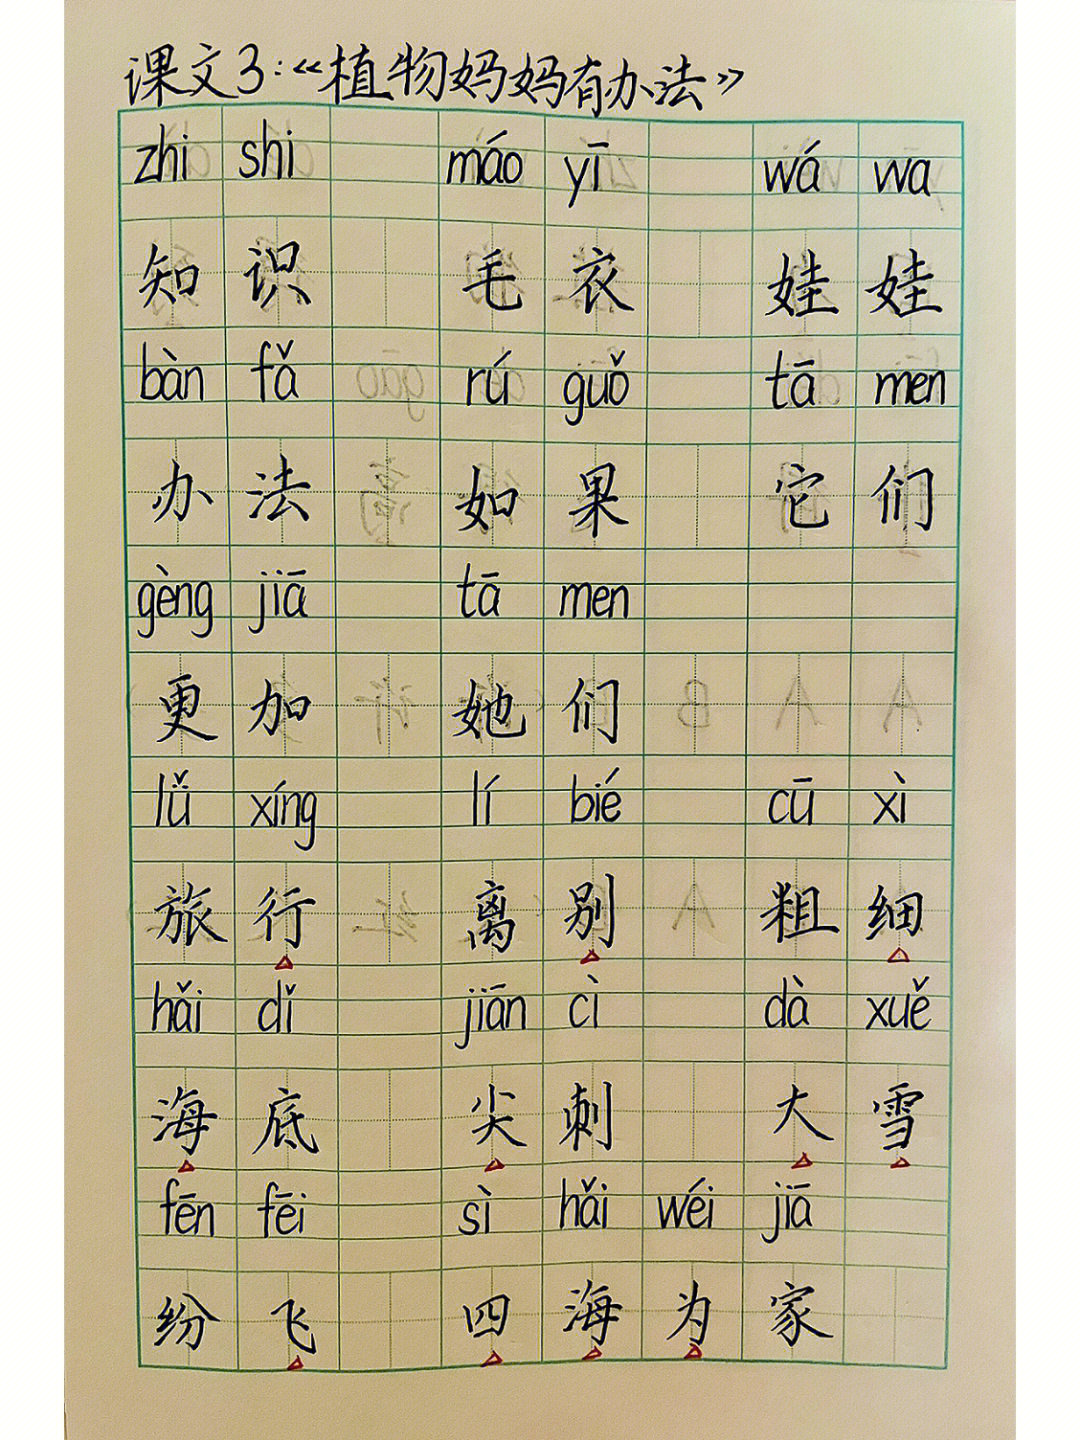 课文3:《植物妈妈有办法》
zhi shi máo yī wá wa
知识 毛衣 娃娃
bàn fǎ rú guǒ tā men
办法 如果 它们
gèng jiā tā men
更加 她们
lǚ xíng lí bié cū xì
旅行 离别 粗细
hǎi dǐ jiān cì dà xuě
海底 尖刺 大雪
fēn fēi sì hǎi wéi jiā
纷飞 四海为家